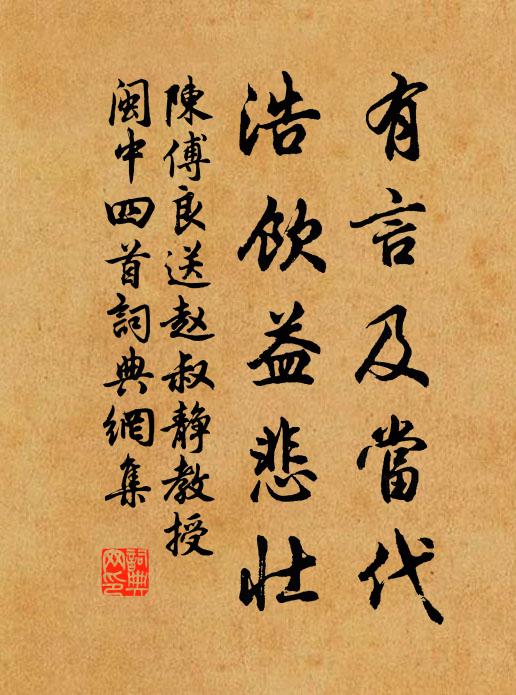 有言及當代
浩飲益悲壯
陳傅良送赵叔静教授
閩中四首詞典網集
詞典
网印